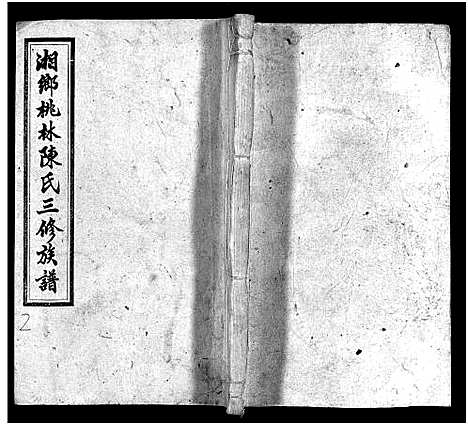 湘鄉桃林陳氏三修族譜
2